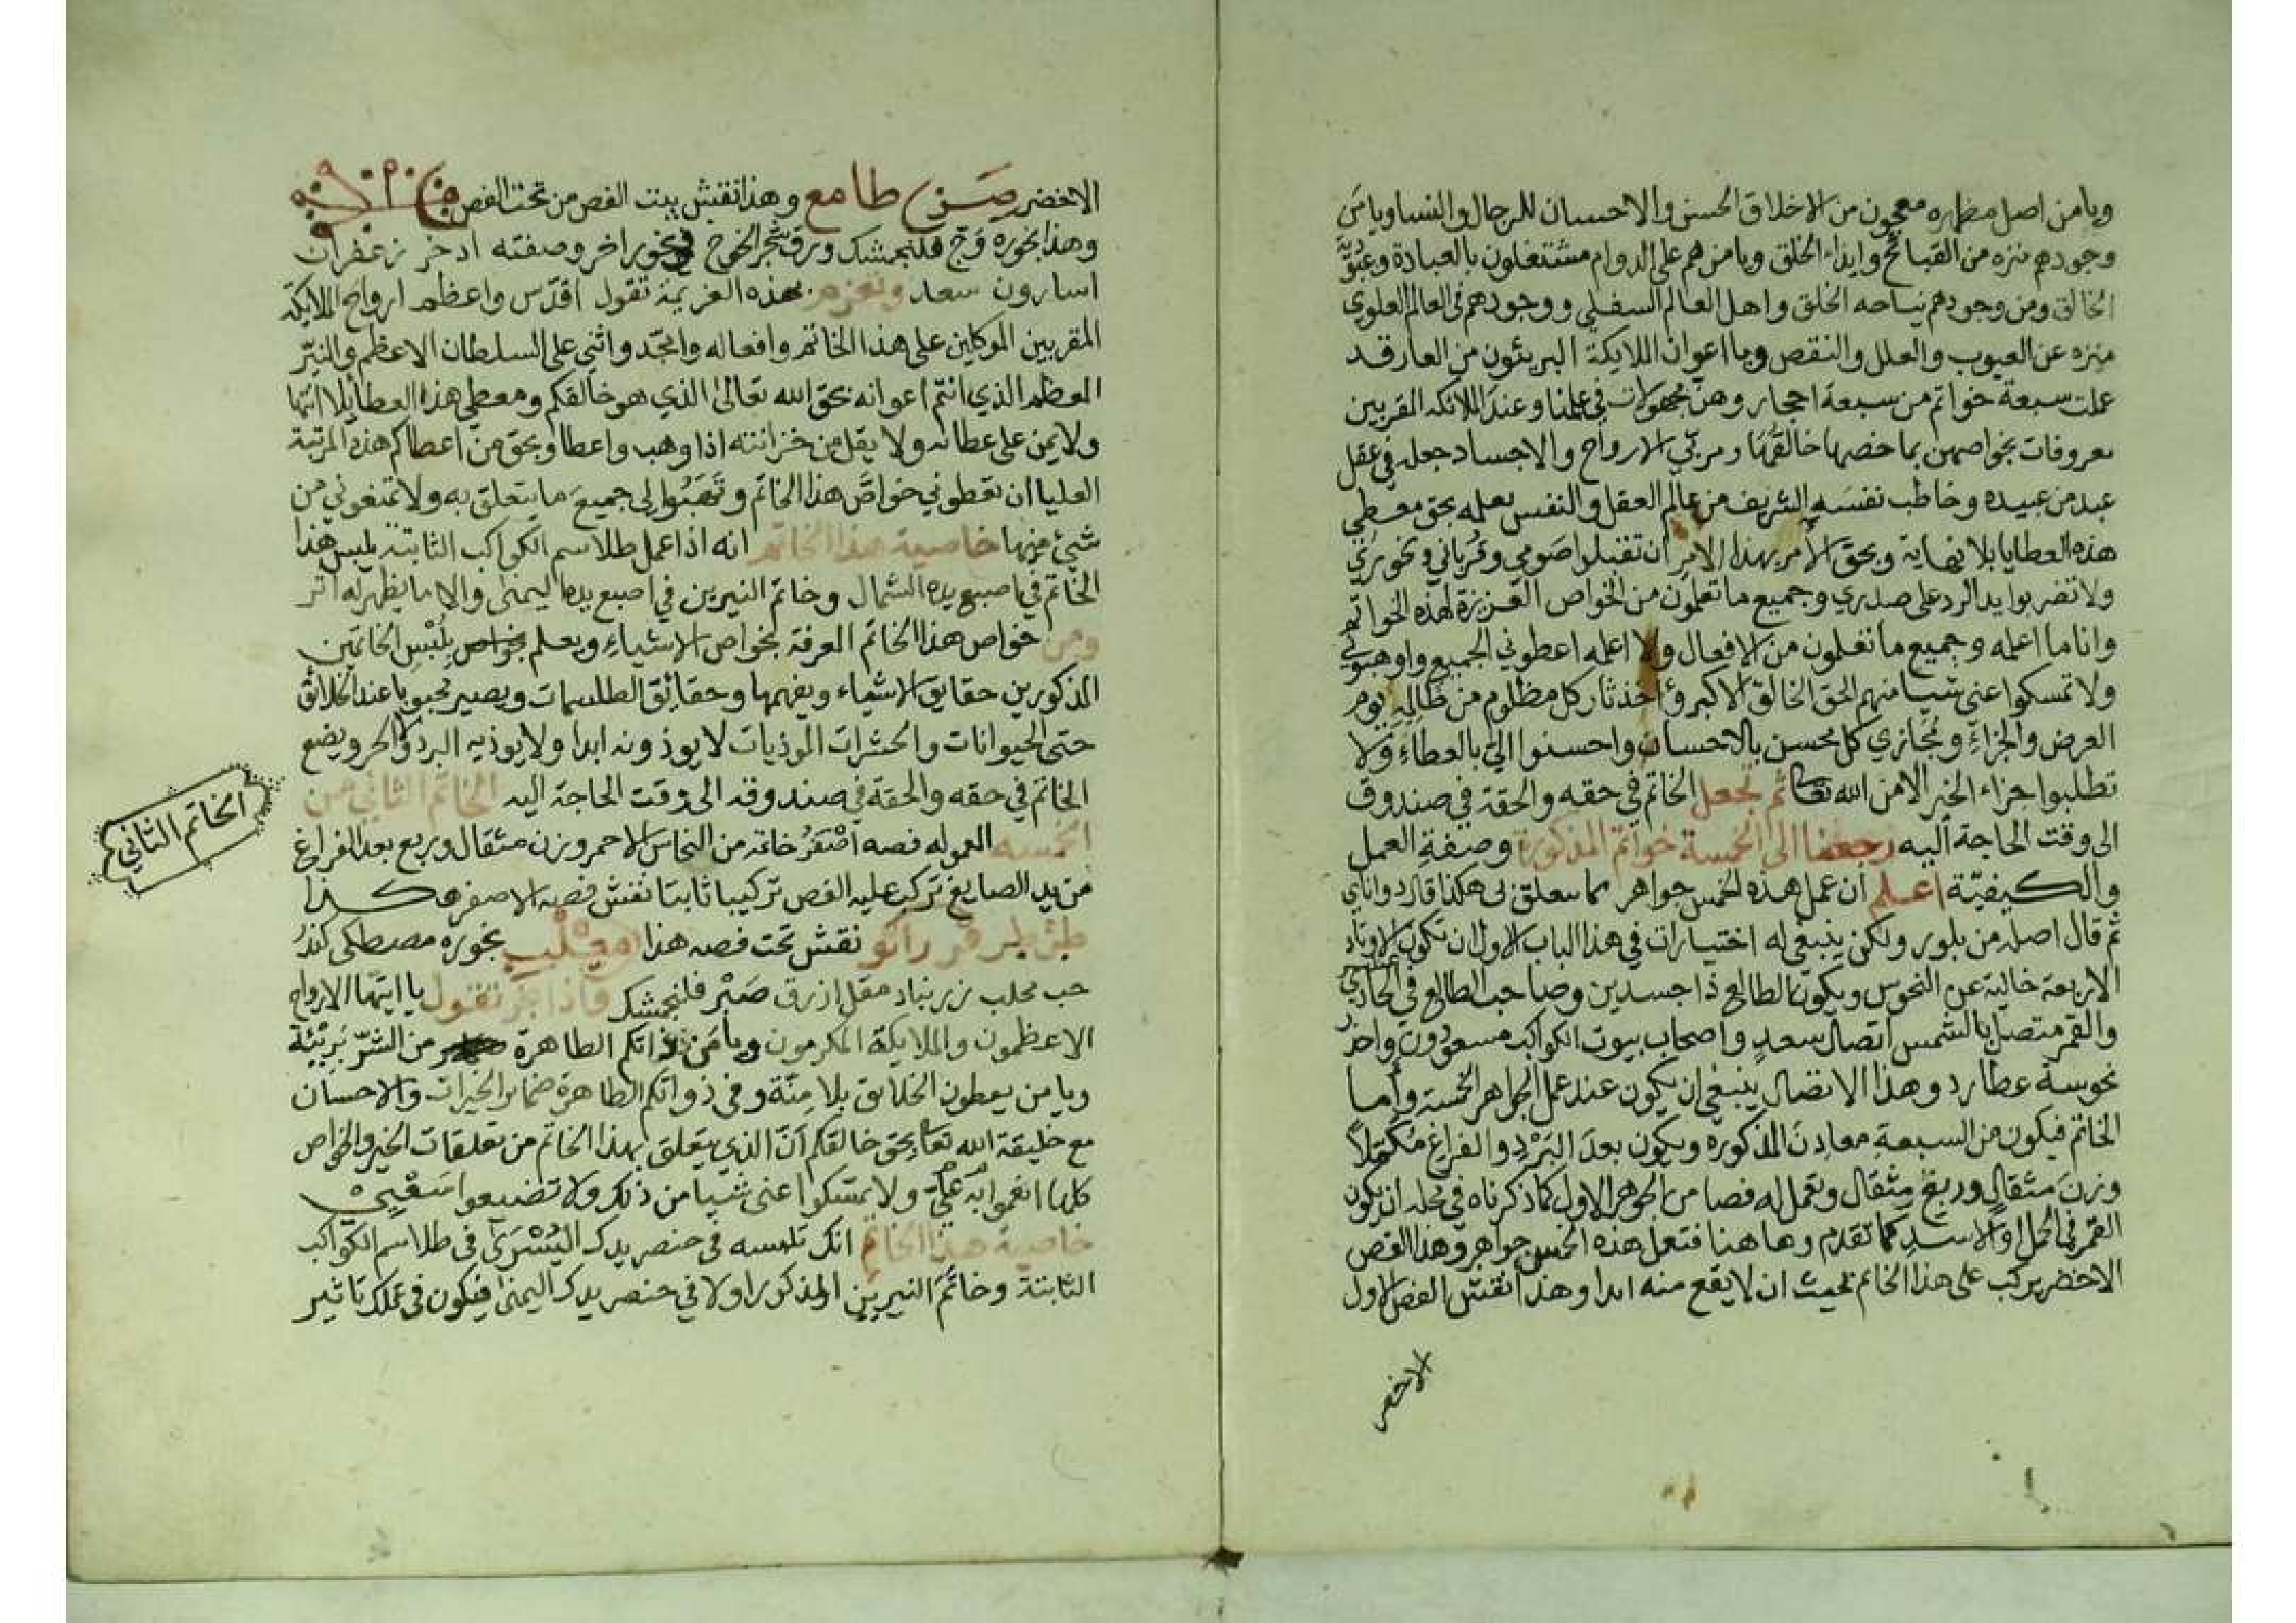 ويامن اصل مظهاره معجون من الاخلاق الحسن والاحسان للرجال والنسا ويامن
وجودهم نزه من القبائح وايذاء الخلق ويامن هم على الدوام مشتغلون بالعبادة
الخالق ومن وجودهم نياحه الخلق واهل العالم السفلي ووجودهم في العالم العلوي
منزه عن العيوب والعلل والنقص ويا اعوان الملايكة البريئون من العار قد
عملت سبعة خواتم من سبعة احجار وهن مجهولات في علمنا وعند الملائكه المقربين
معروفات بخواصهن بما خصها خالقهما ومربي الارواح والاجساد جعله في عقل
عبد من عبيده وخاطب نفسه الشريف من عالم العقل والنفس يعلمه بحق معطي
هذه العطايا بلا نهاية وبحق الامر بهذا الامر ان تقبلوا صومي وقرباني وبخوري
ولا تضربوا يد الرد على صدري وجميع ما تعلمون من الخواص العزيزة لهذه الخواتم
وانا ما اعلمه وجميع ما تفعلون من الافعال ولا اعلمه اعطوني الجميع واوهبوني
ولا تمسكوا عني شيا منهم الحق الخالق الاكبر وآخذ ثار كل مظلوم من ظالمه يوم
العرض والجزاء ومجازي كل محسن بالاحسان واحسنوا الي بالعطاء ولا
تطلبوا جزاء الخير الا من الله تعا ثم تجعل الخاتم في حقه والحقة في صندوق
الى وقت الحاجة اليه رجعنا الى الخمسة خواتم المذكورة وصفة العمل
والكيفية اعلم ان عمل هذه الخمس جواهر مما سعلق لى هكذا قال دواناي
ثم قال اصله من بلور ولكن ينبغي له اختيارات في هذا الباب الاول ان تكون الاوتاد
الاربعة خالية عن النحوس ويكون الطالع ذا جسدين وصاحب الطالع في الحادي
والقمر متصل بالشمس اتصال سعد واصحاب بيوت الكواكب مسعودون واخر
نحوسة عطارد وهذا الاتصال ينبغي ان يكون عند عمل الجواهر الخمسة وأما
الخاتم فيكون من السبعة معادن المذكورة ويكون بعد البرد والفراغ مكملا
وزن مثقال وربع مثقال وتعمل له فصا من الجوهر الاول كما ذكرناه في محله ان يكون
القمر في الحمل او الاسد كما تقدم وها هنا فتعمل هذه الخمس جواهر وهذا الفص
الاخضر يركب على هذا الخاتم بحيث ان لا يقع منه ابدا وهذا نقش الفص الاول
الاخضر
الاخضر طامع وهذا نقش بيت الفص من تحت الفص
وهذا بخوره وج فلنجمشك ورق شجر الخوخ وبخور اخر وصفته ادخر زعفران
اسارون سعد وتعزم بهذه العزيمة تقول اقدس واعظم ارواح الملايكة
المقربين الموكلين على هذا الخاتم وافعاله وامجد واثني على السلطان الاعظم والنير
المعظم الذي انتم اعوانه بحق الله تعالى الذي هو خالقكم ومعطي هذا العطايا بلا انتها
ولا يمن على عطائه ولا يقل من خزائنه اذا وهب واعطا وبحق من اعطاكم هذه المرتبة
العليا ان تعطوني خواص هذا الخاتم وتهبوا لي جميع ما يتعلق به ولا تمنعوني من
شيئ منها خاصية هذا الخاتم انه اذا عمل طلاسم الكواكب الثابتة يلبس هذا
الخاتم في اصبع يده الشمال وخاتم النيرين في اصبع يده اليمنى والا ما يظهر له اثر
ومن خواص هذا الخاتم العرفة بخواص الاشياء وبعلم بلبس الخاتمين
المذكورين حقايق الاشياء ويفهمها وحقائق الطلسمات ويصير محبوبا عند الخلائق
حتى الحيوانات والحشرات الموذيات لا يوذونه ابدا ولا يوذيه البرد والحر ويضع
الخاتم في حقه والحقة في صندوقه الى وقت الحاجة اليه الخاتم الثاني من
الخمسه المعوله فصه اصفر خاتمه من النحاس الاحمر وزن مثقال وربع بعد الفراغ
من يد الصايغ تركب عليه الفص تركيبا ثابتا نقش فصه الاصفر هكذا
نقش تحت فصه هذا بخوره مصطكى كندر
حب محلب زرنباد مقل ازرق صبر فلنجمشك فاذا بخر تقول يا ايتها الارواح
الاعظمون والملايكة المكرمون ويا من ذواتكم الطاهرة من الشر بريئة
ويا من يعطون الخلايق بلا منة وفي ذواتكم الطاهرة ضماير الخيرات والاحسان
مع خليقة الله تعا بحق خالقكم ان الذي يتعلق بهذا الخاتم من تعلقات الخير والخواص
كلها انعموا به علي ولا تمسكوا عني شيا من ذلك ولا تضيعوا سعيي
خاصية هذا الخاتم انك تلبسه في خنصر يدك اليسرى في طلاسم الكواكب
الثابتة وخاتم النيرين المذكور اولا في خنصر يدك اليمنى فيكون في عملك تاثير
الخاتم الثاني